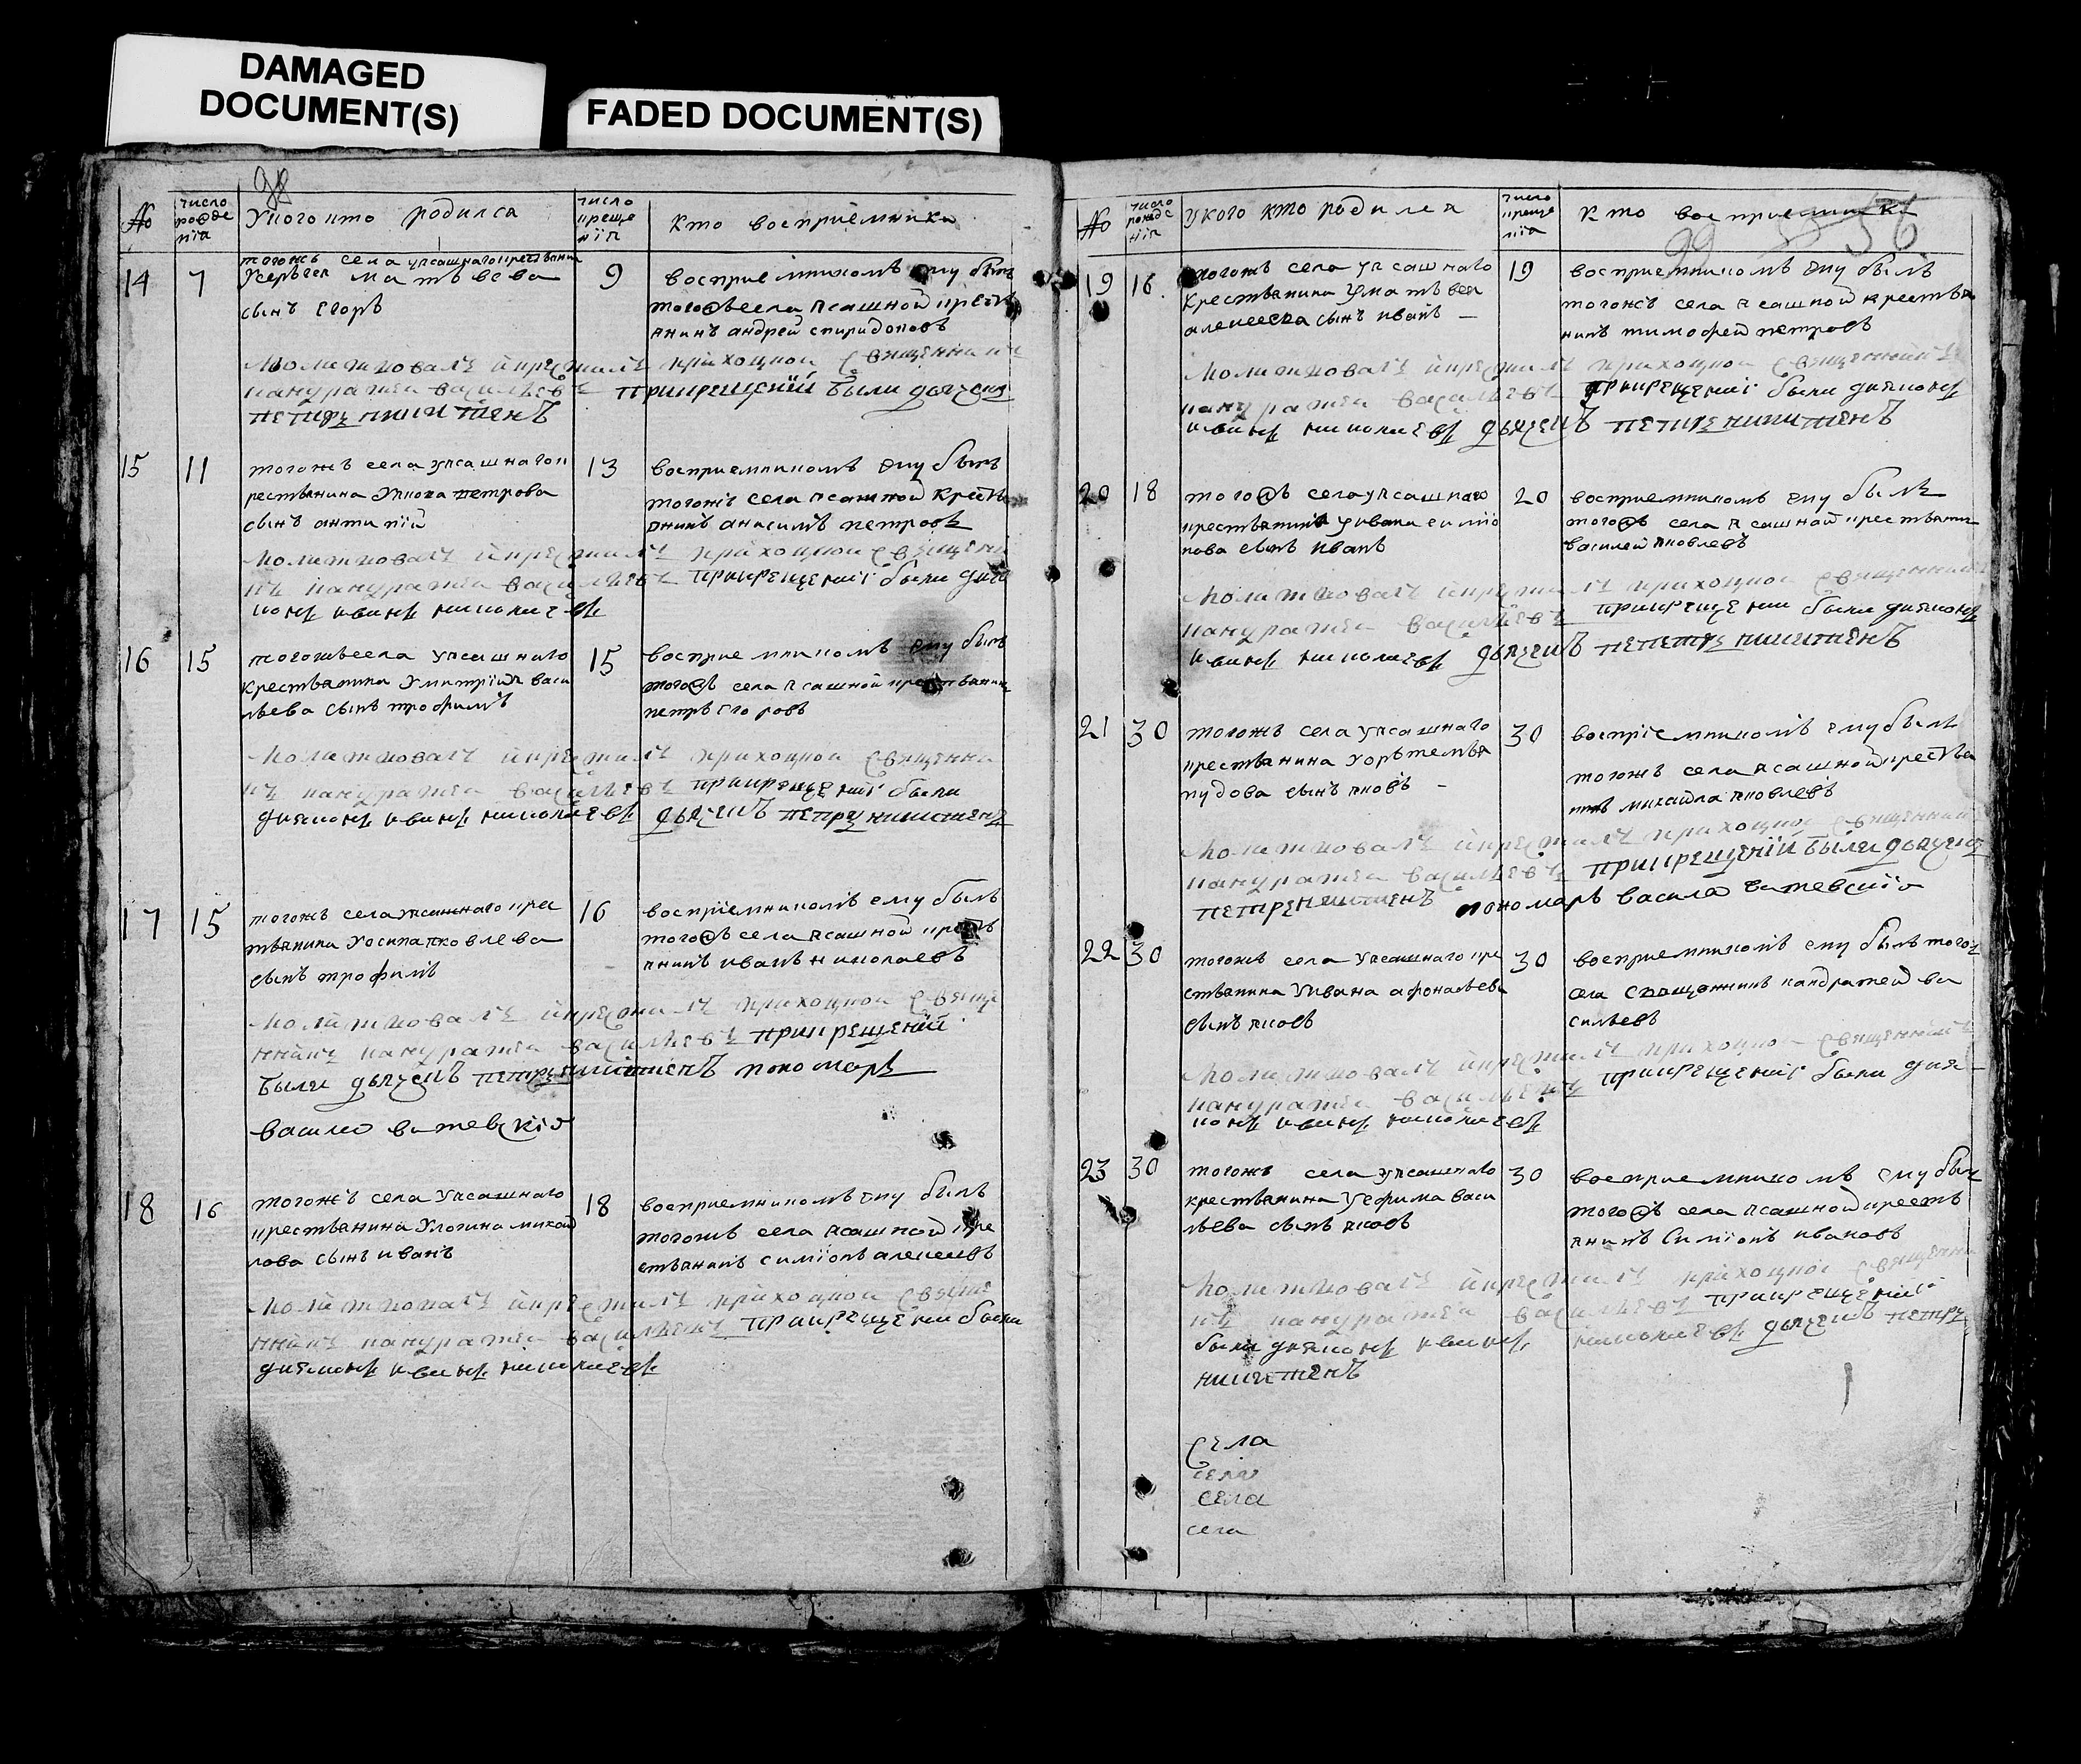 DAMAGED
DOCUMENT(S)
FADED DOCUMENT(S)
98
№
число рожде нїа
Укого кто родилса
число креще нїя
Кто восприемники
14 7
тогожъ села уясашнаго крестьянина
Усергея матвеева
сынъ егоръ
9
восприемникомъ ему былъ
тогожъ села ясашной кресть
янинъ андрей спиридоновъ
молитвовалъ и крестилъ приходной священникъ
кандратей васильевъ прикрещенїи были дьячекъ
петръ никитенъ
15 11
тогожъ села уясашнаго к
рестьянина Уянова петрова
сынъ антипїй
13
восприемникомъ ему былъ
тогожъ села ясашной кресть
янинъ анасимъ петровъ
молитвовалъ и крестилъ приходной священи
къ кандратей васильевъ прикрещенїи были дия
конъ иванъ николаевъ
16 15
тогожъ села уясашнаго
крестьянина Умитрїя васи
льева сынъ трофимъ
15
восприемникомъ ему былъ
тогожъ села ясашной крестьянинъ
петръ егоровъ
молитвовалъ и крестилъ приходной священни
къ кандратей васильевъ прикрещенїи были
дияконъ иванъ николаевъ дьячекъ петръ никитенъ
17 15
тогожъ села уясашнаго крес
тьянина Уосипа яковлева
сынъ трофимъ
16
воспрїемникомъ ему былъ
тогожъ села ясашной кресть
янинъ иванъ николаевъ
молитвовалъ и крестилъ приходной свяще
нникъ кандратей васильевъ прикрещенїи
были дьячекъ петръ никитенъ пономарь
василей витевскїй
18 16
тогожъ села уясашнаго
крестьянина Улогина михай
лова сынъ иванъ
18
восприемникомъ ему былъ
тогожъ села ясашной кре
стьянинъ симїонъ алексеевъ
молитвовалъ и крестилъ приходной свяще
нникъ кандратей васильевъ прикрещении были
дияконъ иванъ николаевъ
№
число рожде нїя
укого кто родился
число креще нїа
Кто восприемники
99 56
19 16
тогожъ села уясашнаго
крестьянина Уматвея
алексеева сынъ иванъ
19
восприемникомъ ему былъ
тогожъ села ясашной крестья
нинъ тимофей петровъ
молитвовалъ и крестилъ приходной священникъ
кандратей васильевъ прикрещенїи были дияконъ
иванъ николаевъ дьячекъ петръ никитенъ
20 18
тогожъ села уясашнаго
крестьянина Уивана симїо
нова сынъ иванъ
20
восприемникомъ ему былъ
тогожъ села ясашной крестьянин
василей яковлевъ
молитвовалъ и крестилъ приходной священникъ
кандратей васильевъ прикрещении были дияконъ
иванъ николаевъ дьячекъ пепетръ никитенъ
21 30
тогожъ села уясашнаго
крестьянина
пудова сынъ яковъ
30
воспрїемникомъ ему былъ
тогожъ села ясашной крестья
нинъ михайла яковлевъ
молитвовалъ и крестилъ приходной священник
кандратей васильевъ прикрещенїи были дьячекъ
петръ никитенъ пономарь василей витевскїй
22 30
тогожъ села уясашнаго кре
стьянина Уивана афонасьева
сынъ яковъ
30
восприемникомъ ему былъ тогож
села священникъ кандратей ва
сильевъ
молитвовалъ и крестилъ приходной священникъ
кандратей васильевъ прикрещенїи были дия
конъ иванъ николаевъ
23 30
тогожъ села уясашнаго
крестьянина Уефима васи
льева сынъ яковъ
30
восприемникомъ ему былъ
тогожъ села ясашной кресть
янинъ Симїонъ ивановъ
молитвовалъ и крестилъ приходной священни
къ кандратей васильевъ прикрещенїи
были дияконъ иванъ николаевъ дьячекъ петръ
никитенъ
села
села
села
села